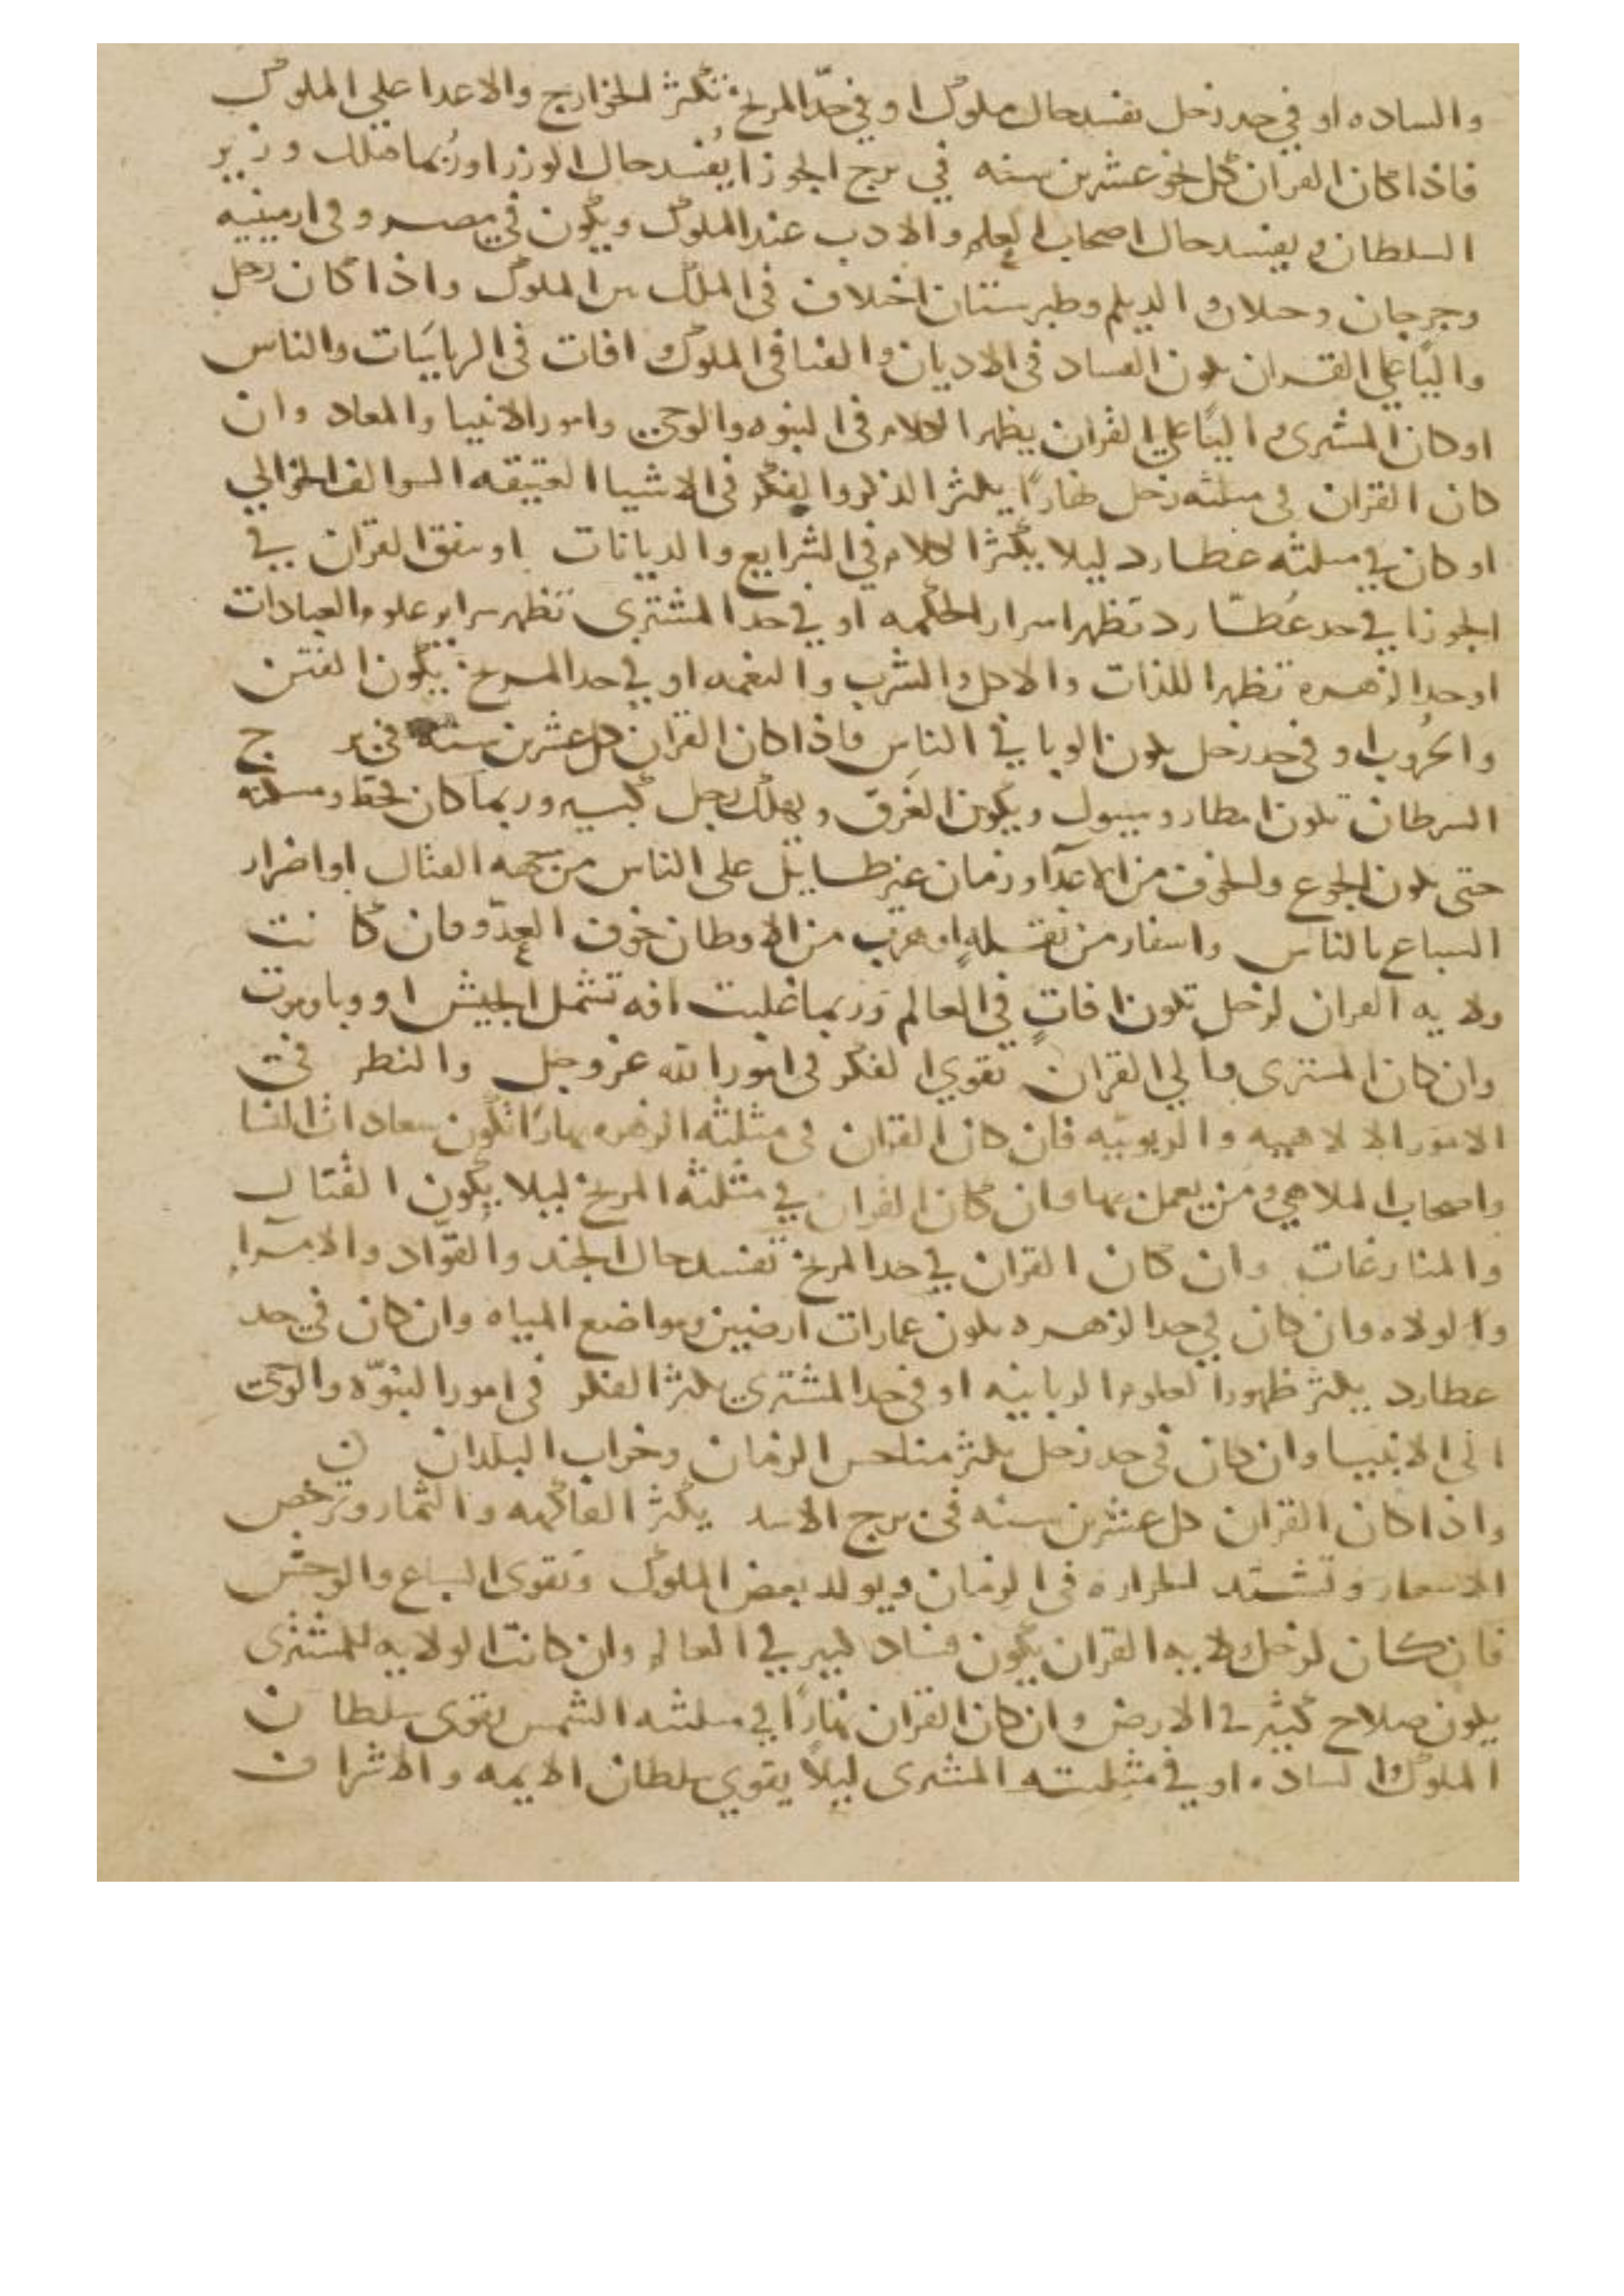 والساده او في حد زحل تفسد حال ملوك او في حدّ المريخ تكثر الخوارج والاعدا علي الملوك
فاذا كان القران كل نحو عشرين سنه في برج الجوزا يُفسد حال الوزرا وربما قتلك وزير
السلطان ويفسد حال اصحاب العلم والادب عند الملوك ويكون في مصر وفي ارمينيه
وجرجان وحلان والديلم وطبرستان اختلاف في الملك بين الملوك واذا كان زحل
والياً على القران يكون الفساد في الاديان والفنا في الملوك افات في الرياسَات والناس
او كان المشترى والياً علي القران يظهر الكلام في النبوه والوحي وامور الانبيا والمعاد وان
كان القران في مثلثه زحل نهارًا يكثر الذكر والفكر في الاشيا العتيقه السوالف الخوالي
او كان في مثلثه عطارد ليلا يكثر الكلام في الشرايع والديانات او يتفق القران في
الجوزا في حد عُطارد تظهر اسرار الحكمه او في حد المشتري تظهر سراير علوم العبادات
او حد الزهره تظهر اللذات والاكل والشرب والنغمه او في حد المريخ يكون الفتن
والحُروب او في حد زحل يكون الوبا في الناس فاذا كان القران كل عشرين سنة في بر ج
السرطان تكون امطار وسيول ويكون الغَرق ويهلك رجل كبير وربما كان قحط ومسكنه
حتى يكون الجوع والخوف من الاعدآ وزمان غير طايل على الناس من جهه القتال او اضرار
السباع بالناس واسفار من نقله او هرب من الاوطان خوف العدّو فان كا نت
ولايه القران لزحل تكون افاتٍ في العالم وربما غلبت افه تشمل الجيش او وبا وموت
وان كان المشترى والي القران تقوي الفكر في امور الله عز وجل والنظر في
الامور الالاهييه والربوبيّه فان كان القران في مثلثه الزهره نهارًا تكون سعادات النسا
واصحاب الملاهي ومن يعمل بها وان كان القران في مثلثه المريخ ليلا يكون القتال
والمنازعات وان كان القران في حد المريخ تفسد حال الجند والقوّاد والامرآ
والولاه وان كان في حد الزهره يكون عمارات ارضين ومواضع المياه وان كان في حد
عطارد يكثر ظهور العلوم الربانيه او في حد المشتري يكثر الفكر في امور النبوّه والوحي
الى الانبيا وان كان في حد زحل يكثر مناحس الزمان وخراب البلدان
واذا كان القران كل عشرين سنه في برج الاسد يكثر الفاكهه والثمار وترخص
الاسعار وتشتد الحراره في الزمان ويولد بعض الملوك وتقوى السباع والوحش
فان كان لزحل ولايه القران يكون فساد كبير في العالم وان كانت الولايه للمشترى
يكون صلاح كثير في الارض وان كان القران نهارًا في مثلثه الشمس يقوى سلطا ن
الملوك الساده او في مثلثته المشترى ليلاً يقوي سلطان الايمه والاشرا ف